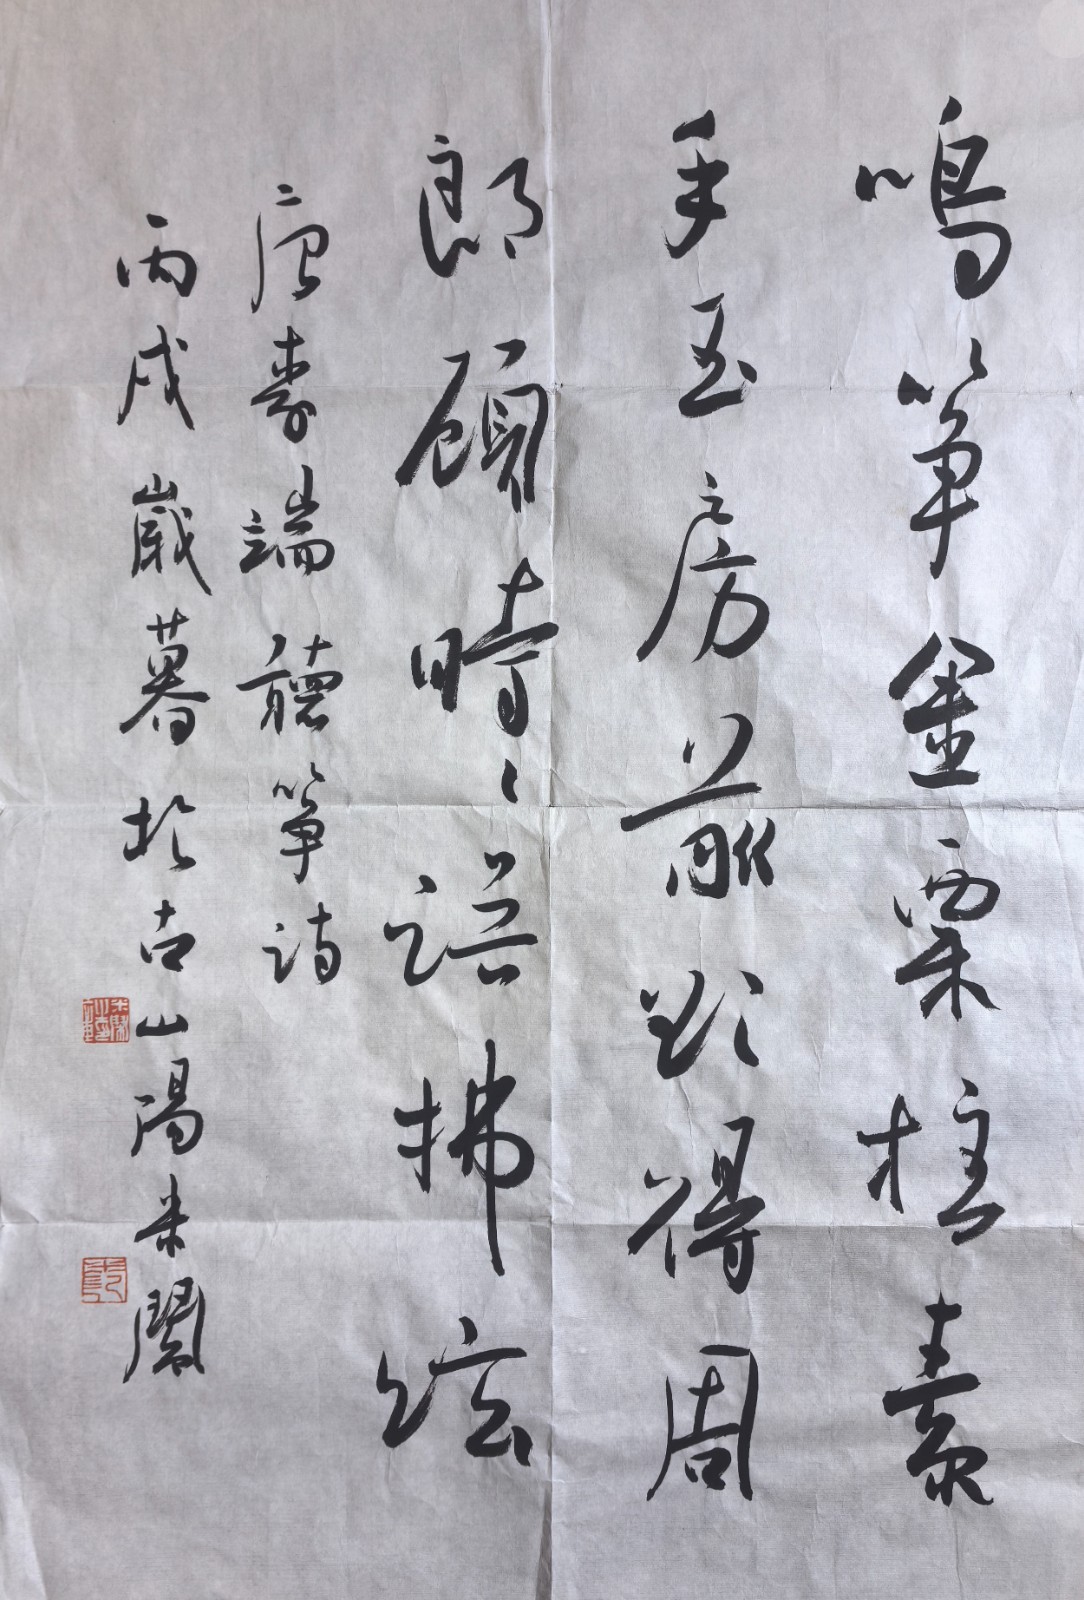 鳴箏金粟柱素
手玉房前欲得周
郎顧時々誤拂弦
唐李端聽箏詩
丙戌歲暮於古山陽朱